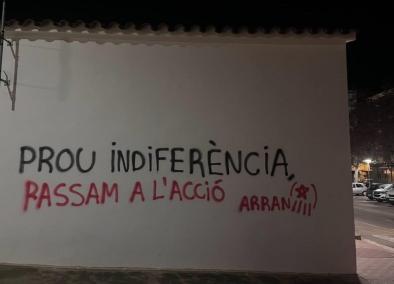 PROU INDIFERÈNCIA,
RASSAM A L'ACCIÓ ARRAN